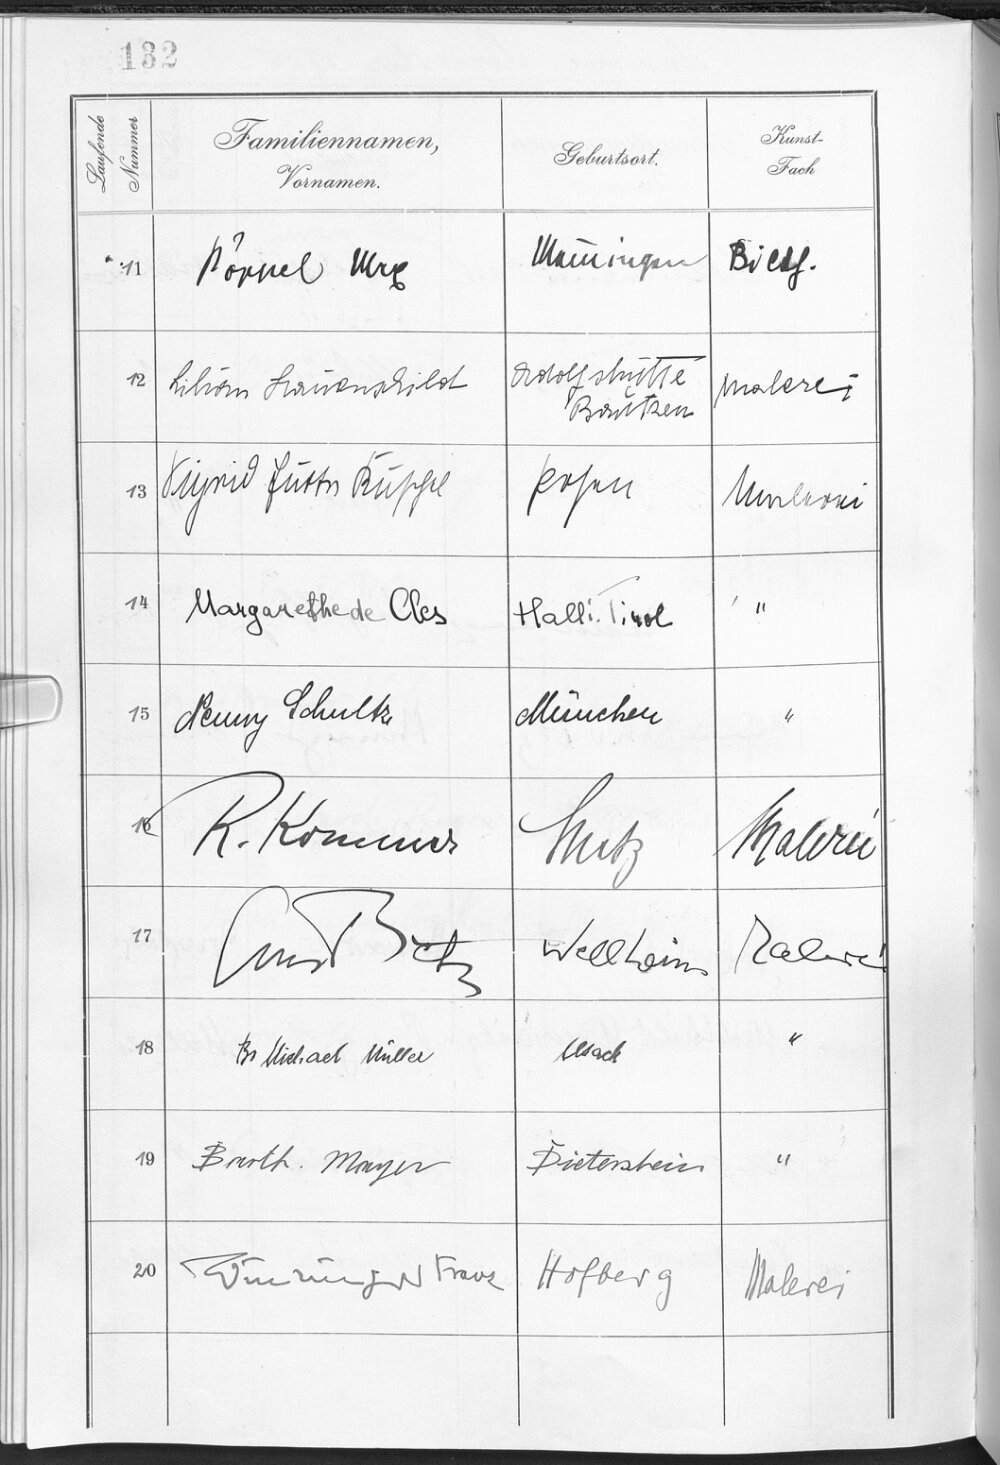 132
Laufende Nummer
Familiennamen, Vornamen.
Geburtsort.
Kunst-Fach
11 Pöppel Max Memmingen Bildh.
12 Lilian Hauenschild Adolfshütte Bautzen Malerei
13 Sigrid Jutta Posen Malerei
14 Margarethe de Cles Hall i. Tirol "
15 Schultz München "
16 R. Kommer Metz Malerei
17 Betz Wellheim Malerei
18 Br Michael Müller "
19 Barth. Mayer "
20 Franz Hofberg Malerei